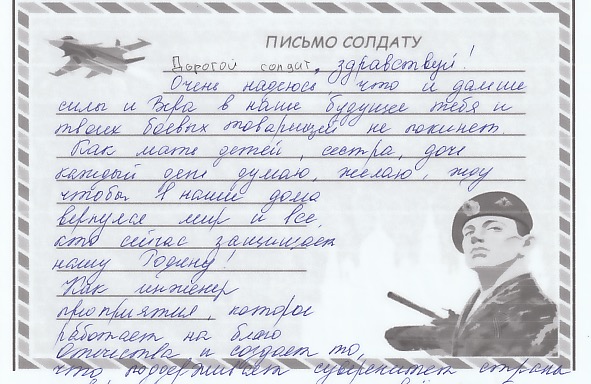 ПИСЬМО СОЛДАТУ
Дорогой солдат, здравствуй!
Очень надеюсь что и дальше
силы и Вера в наше будущее тебя и
твоих боевых товарищей не покинет.
Как мать детей, сестра, дочь
каждый день думаю, желаю, жду
чтобы в наши дома
вернулся мир и все,
кто сейчас защищает
нашу Родину!
Как инженер
предприятия, которое
работает на благо
Отечества и создает то,
что поддерживает суверенитет страны